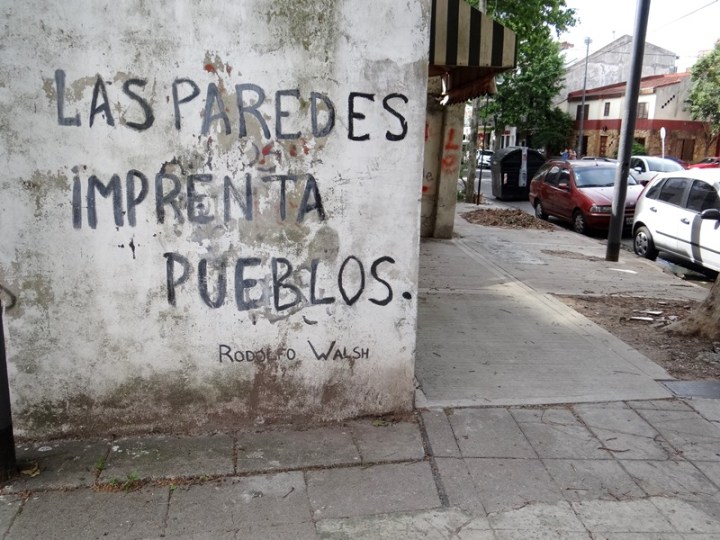 LAS PAREDES
IMPRENTA
PUEBLOS.
RODOLFO WALSH